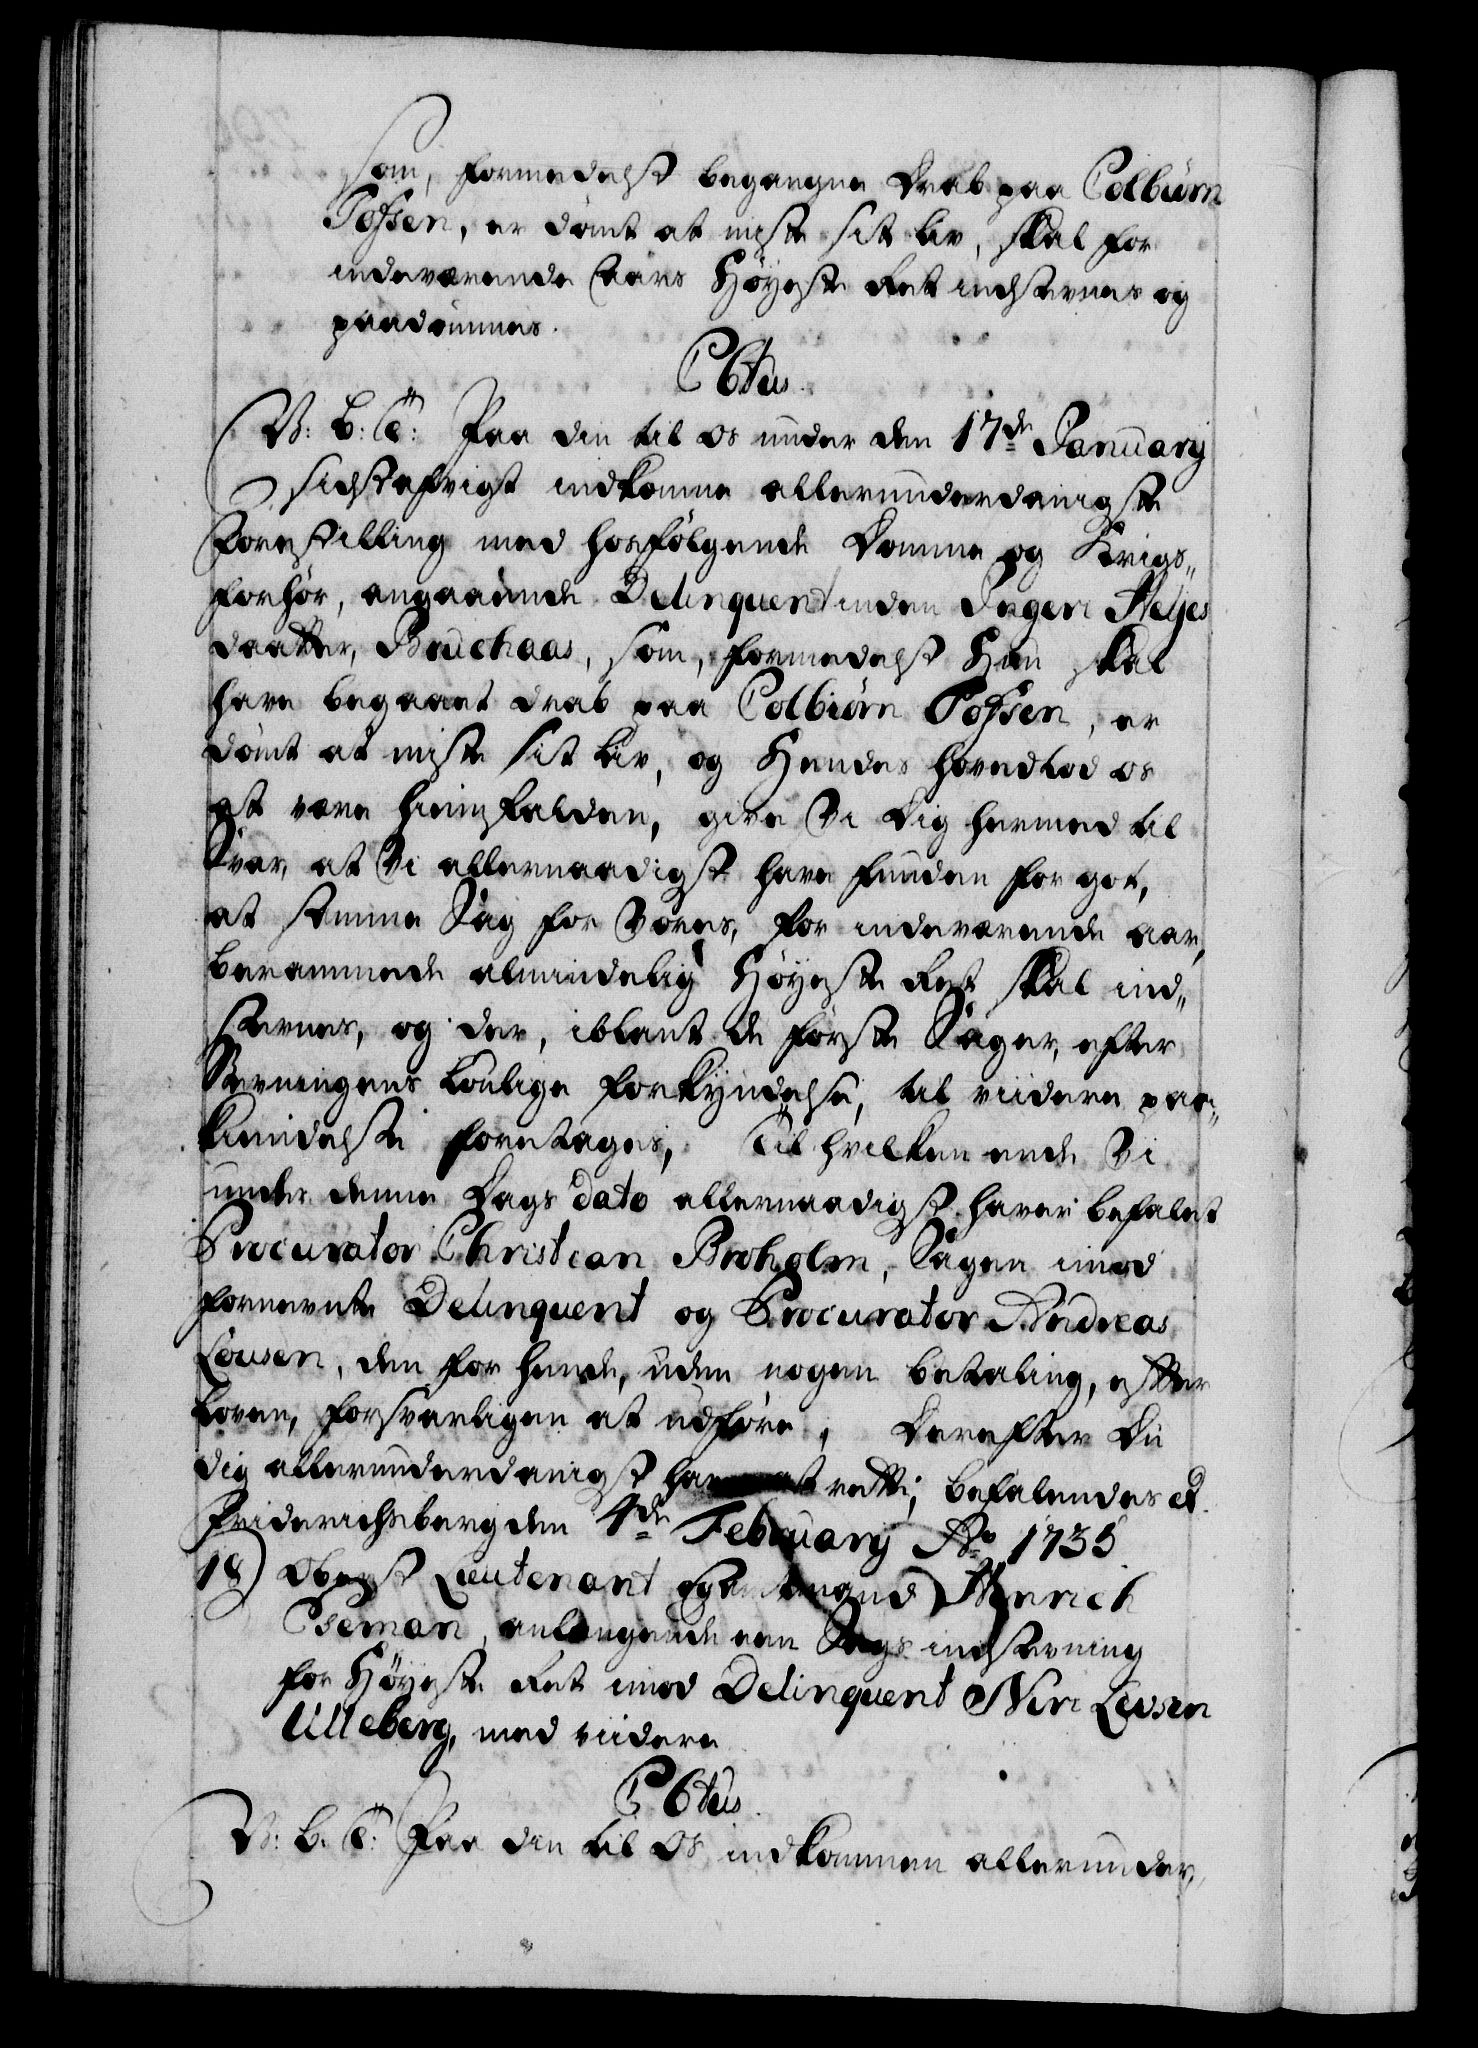 som, formedelst begangne Drab paa Colbiørn
Tofsen, er dømt at miste sit liv, skal for
indeværende Aars Høyeste Ret indstevnes og
paadømmes.
C 6tus.
V: G: T: Paa din til os under den 17de January
sidstafvigt indkomne allerunderdanigste
Forestilling med hosfølgende Domme og Krigs„
forhør, angaaende Delinquentinden Ingeri Heljes
daatter, Bruchaas, som, formedelst Hun skal
have begaaet drab paa Colbiørn Tofsen, er
dømt at miste sit liv, og Hendes hovedlod os
at være hiemfalden, give Vi dig hermed til
Svar, at Vi allernaadigst have funden for got,
at samme Sag for Vores, for indeværende aar,
berammede almindelig Høyeste Ret skal ind„
stevnes, og der, iblant de første Sager, efter
Stevningens lovlige forkyndelse, til viidere paa„
kiendelse foretages, Til hvilken ende Vi
under denne Dags dato allernaadigst haver befalet
Procurator Christian Broholm, Sagen imod
fornevnte Delinquent og Procurator Andreas
Lousen, den for hende, uden nogen betaling, efter
loven, forsvarligen at udføre, Derefter Du
dig allerunderdanigst have at rette; befalendes et.
Friderichsberg den 4de February Ao 1735
18) Oberst Lieutenant Hinrich
anlangende een Sags indstevning
for Høyeste Ret imod Delinquent Niri Levsen
Ulleberg, med viidere
C 6tus.
V: G: T: Paa din til Os indkommen allerunder„